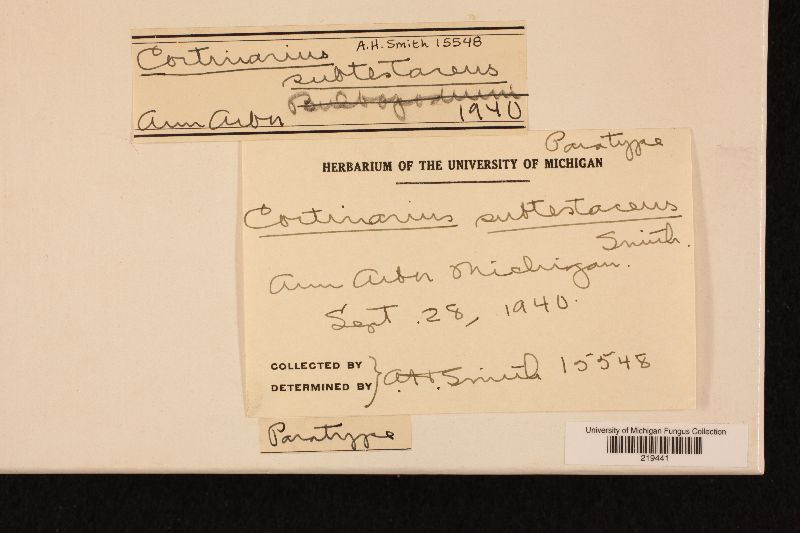 Cortinarius A.H. Smith 15548
subtestaceus
Bulbopodium
Ann Arbor 1940
Paratype
HERBARIUM OF THE UNIVERSITY OF MICHIGAN
Cortinarius subtestaceus
Smith.
Ann Arbor Michigan.
Sept. 28, 1940.
COLLECTED BY
DETERMINED BY } A.H. Smith 15548
Paratype
University of Michigan Fungus Collection
219441